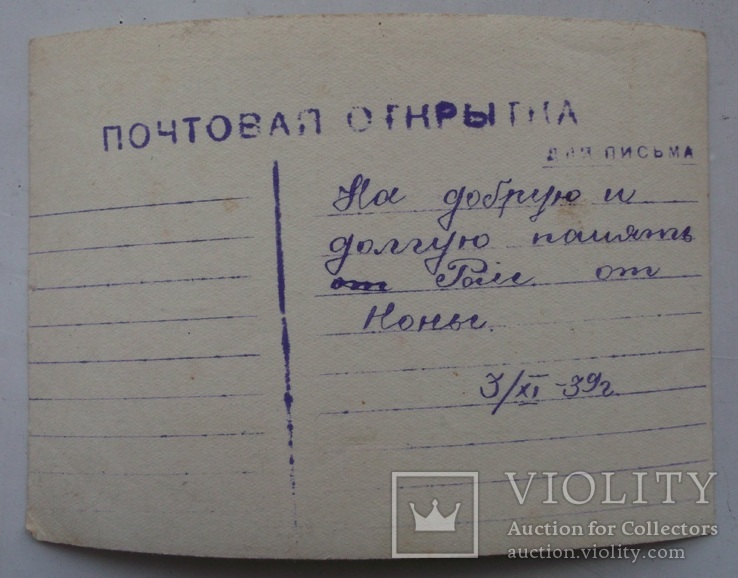 ПОЧТОВАЯ ОТКРЫТКА
ДЛЯ ПИСЬМА
На добрую и
долгую память
от
Ноны.
3/XI-39г.
VIOLITY
Auction for Collectors
auction.violity.com